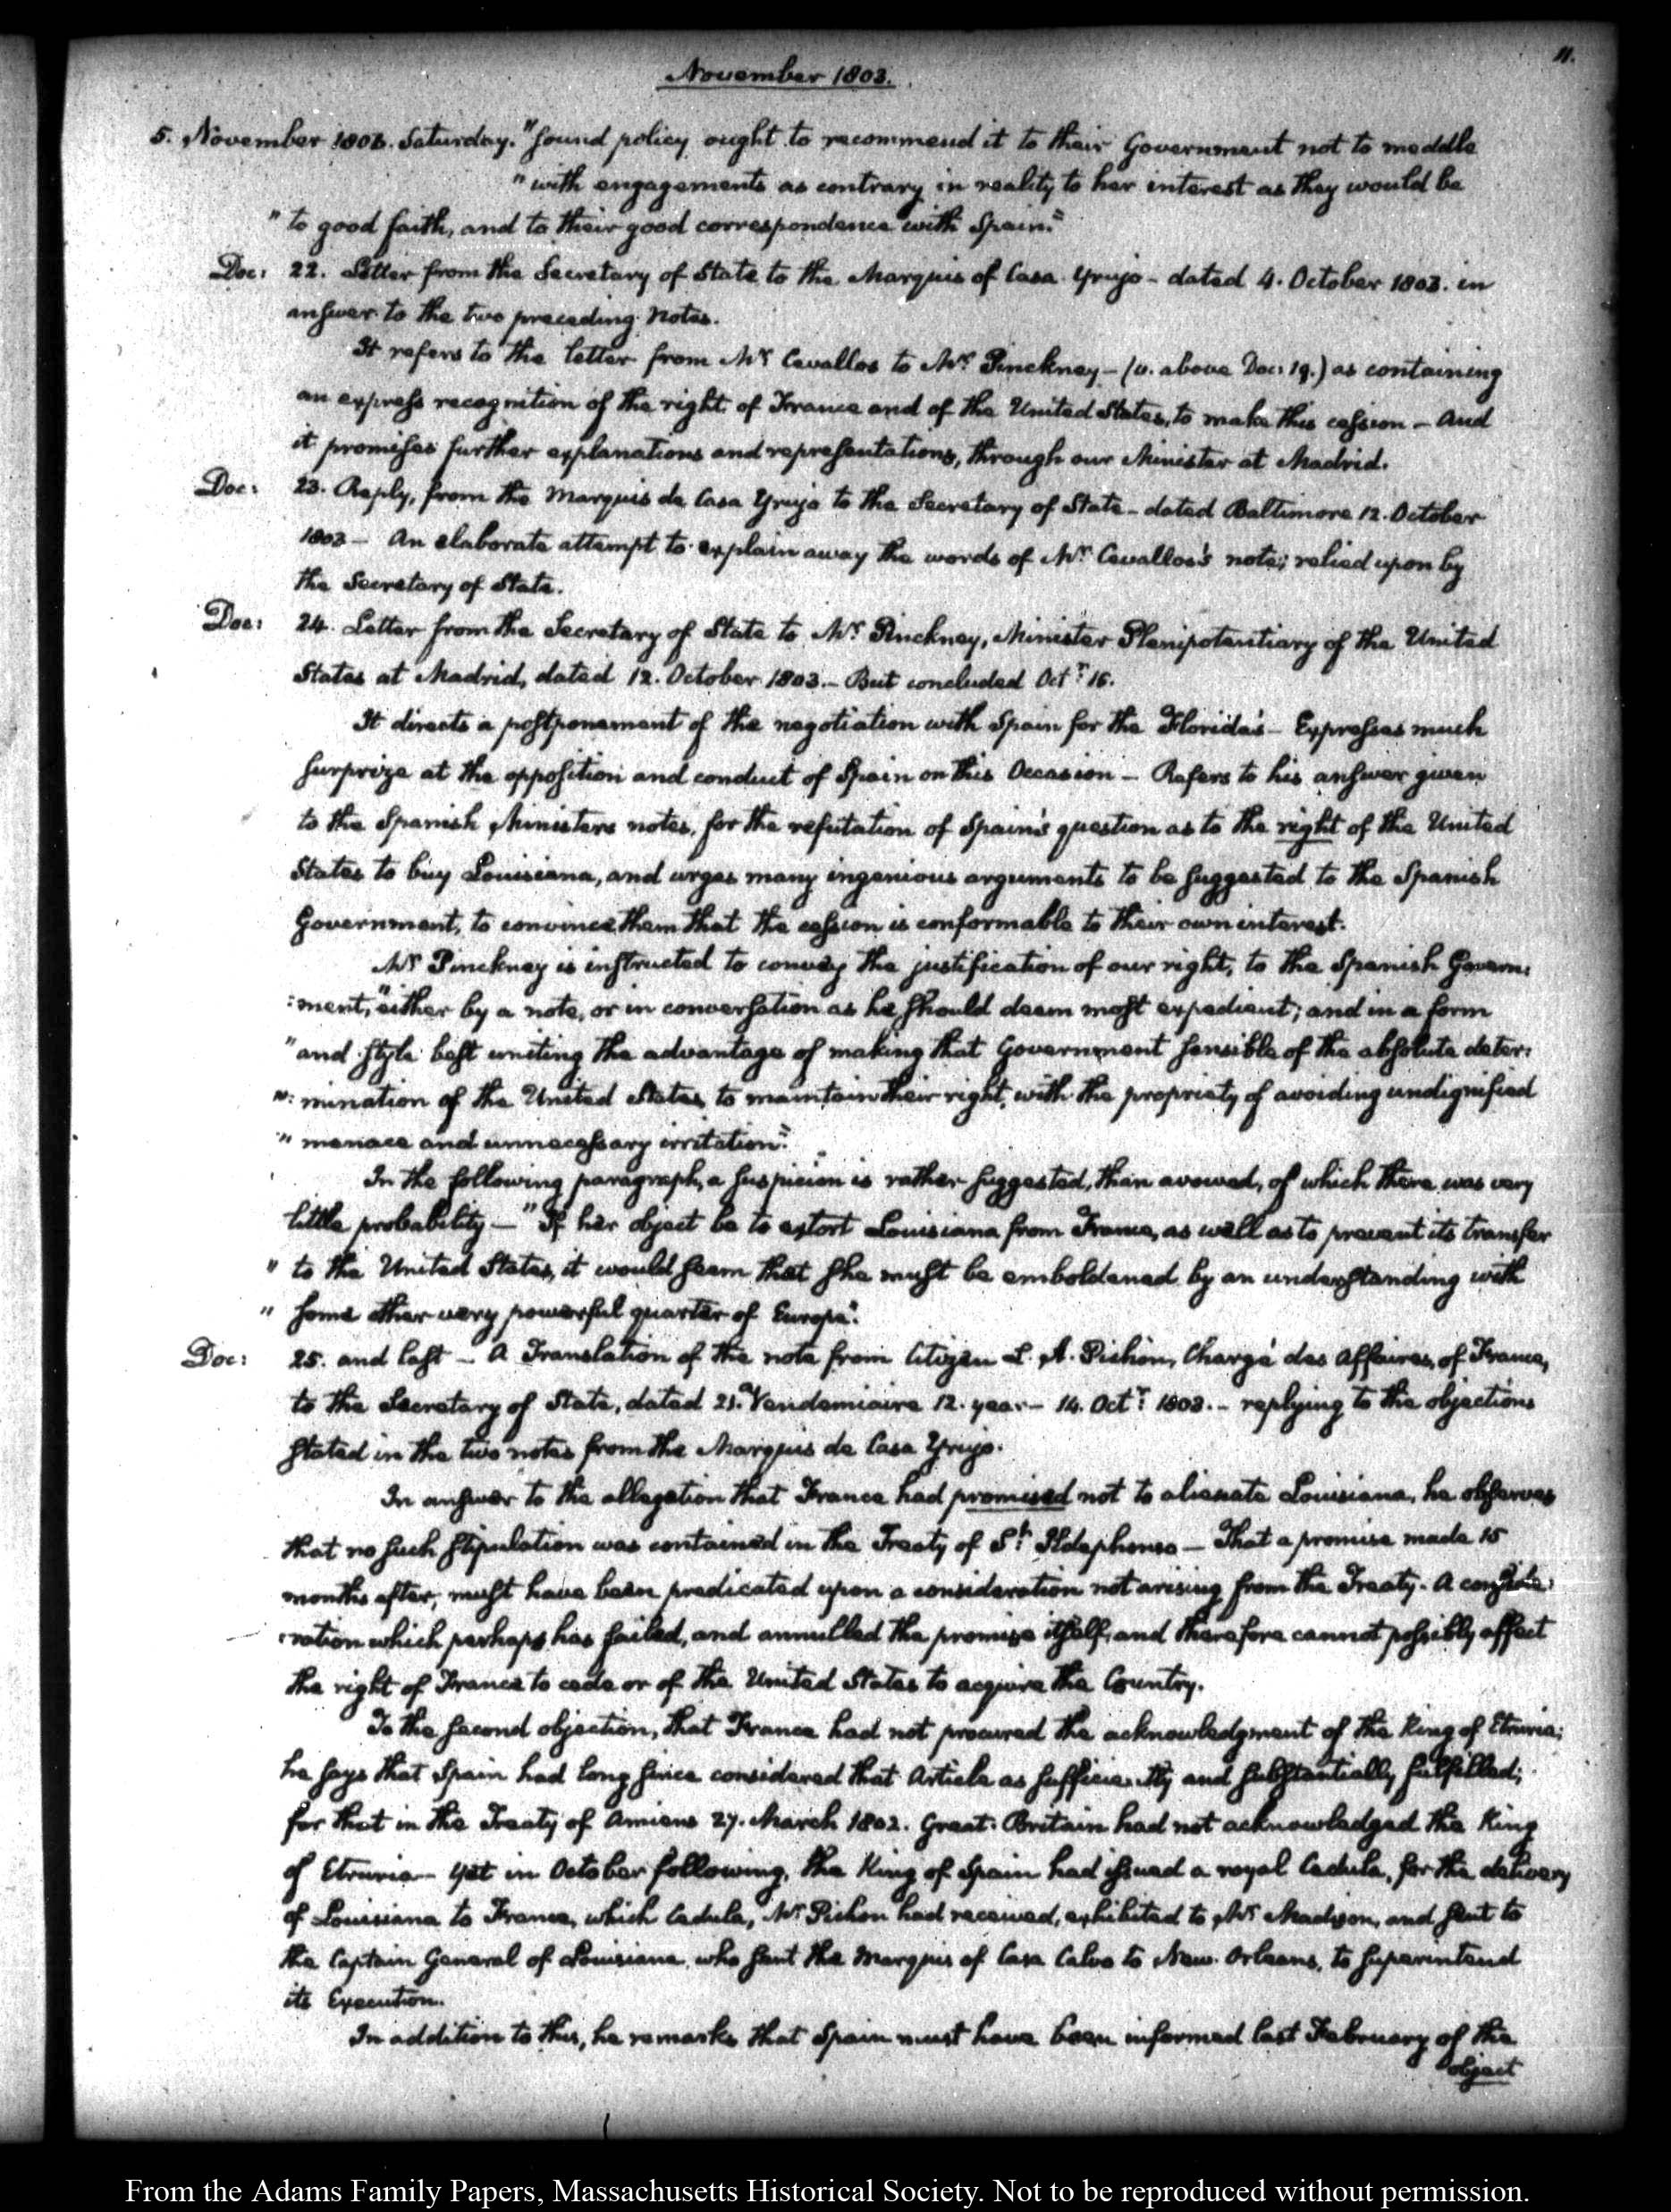 11.
November 1803.
5. November 1803. Saturday. "sound policy ought to recommend it to their Government not to meddle
" with engagements as contrary in reality to her interest as they would be
" to good faith, and to their good correspondence with Spain."
Doc: 22. Letter from the Secretary of State to the Marquis of Casa Yrujo - dated 4. October 1803. in
answer to the two preceding Notes.
It refers to the letter from Mr Cevallos to Mr Pinckney - (v. above Doc: 19.) as containing
an express recognition of the right of France and of the United States, to make this cession - And
it promises further explanations and representations, through our Minister at Madrid.
Doc: 23. Reply, from the Marquis de Casa Yrujo to the Secretary of State - dated Baltimore 12. October
1803 - An elaborate attempt to explain away the words of Mr Cevallos's note; relied upon by
the Secretary of State.
Doc: 24. Letter from the Secretary of State to Mr Pinckney, Minister Plenipotentiary of the United
States at Madrid, dated 12. October 1803. - But concluded Octr: 16.
It directs a postponement of the negotiation with Spain for the Florida's - Expresses much
surprize at the opposition and conduct of Spain on this Occasion - Refers to his answer given
to the Spanish Ministers notes, for the refutation of Spain's question as to the right of the United
States to buy Louisiana, and urges many ingenious arguments to be suggested to the Spanish
Government, to convince them that the cession is conformable to their own interest.
Mr Pinckney is instructed to convey the justification of our right, to the Spanish Govern:
:ment, "either by a note, or in conversation as he should deem most expedient; and in a form
" and style best uniting the advantage of making that Government sensible of the absolute deter:
": mination of the United States to maintain their right, with the propriety of avoiding undignified
" menace and unnecessary irritation."
In the following paragraph, a suspicion is rather suggested, than avowed, of which there was very
little probability - " If her object be to extort Louisiana from France, as well as to prevent its transfer
" to the United States, it would seem that she must be emboldened by an understanding with
" some other very powerful quarter of Europe."
Doc: 25. and last - A Translation of the note from Citizen L. A. Pichon, Chargé des Affaires, of France,
to the Secretary of State, dated 21. Vendemiaire 12. year - 14. Octr: 1803. - replying to the objections
stated in the two notes from the Marquis de Casa Yrujo.
In answer to the allegation that France had promised not to alienate Louisiana, he observes
that no such stipulation was contained in the Treaty of St: Ildephonso - That a promise made 15
months after, must have been predicated upon a consideration not arising from the Treaty. A conside:
:ration which perhaps has failed, and annulled the promise itself, and therefore cannot possibly affect
the right of France to cede or of the United States to acquire the Country.
To the second objection, that France had not procured the acknowledgment of the King of Etruria;
he says that Spain had long since considered that Article as sufficiently and substantially fulfilled;
for that in the Treaty of Amiens 27. March 1802. Great-Britain had not acknowledged the King
of Etruria - yet in October following, the King of Spain had issued a royal Cedula, for the delivery
of Louisiana to France, which Cedula, Mr Pichon had received, exhibited to Mr Madison, and sent to
the Captain General of Louisiana, who sent the Marquis of Casa Calvo to New-Orleans, to superintend
its Execution.
In addition to this, he remarks that Spain must have been informed last February of the
object
From the Adams Family Papers, Massachusetts Historical Society. Not to be reproduced without permission.